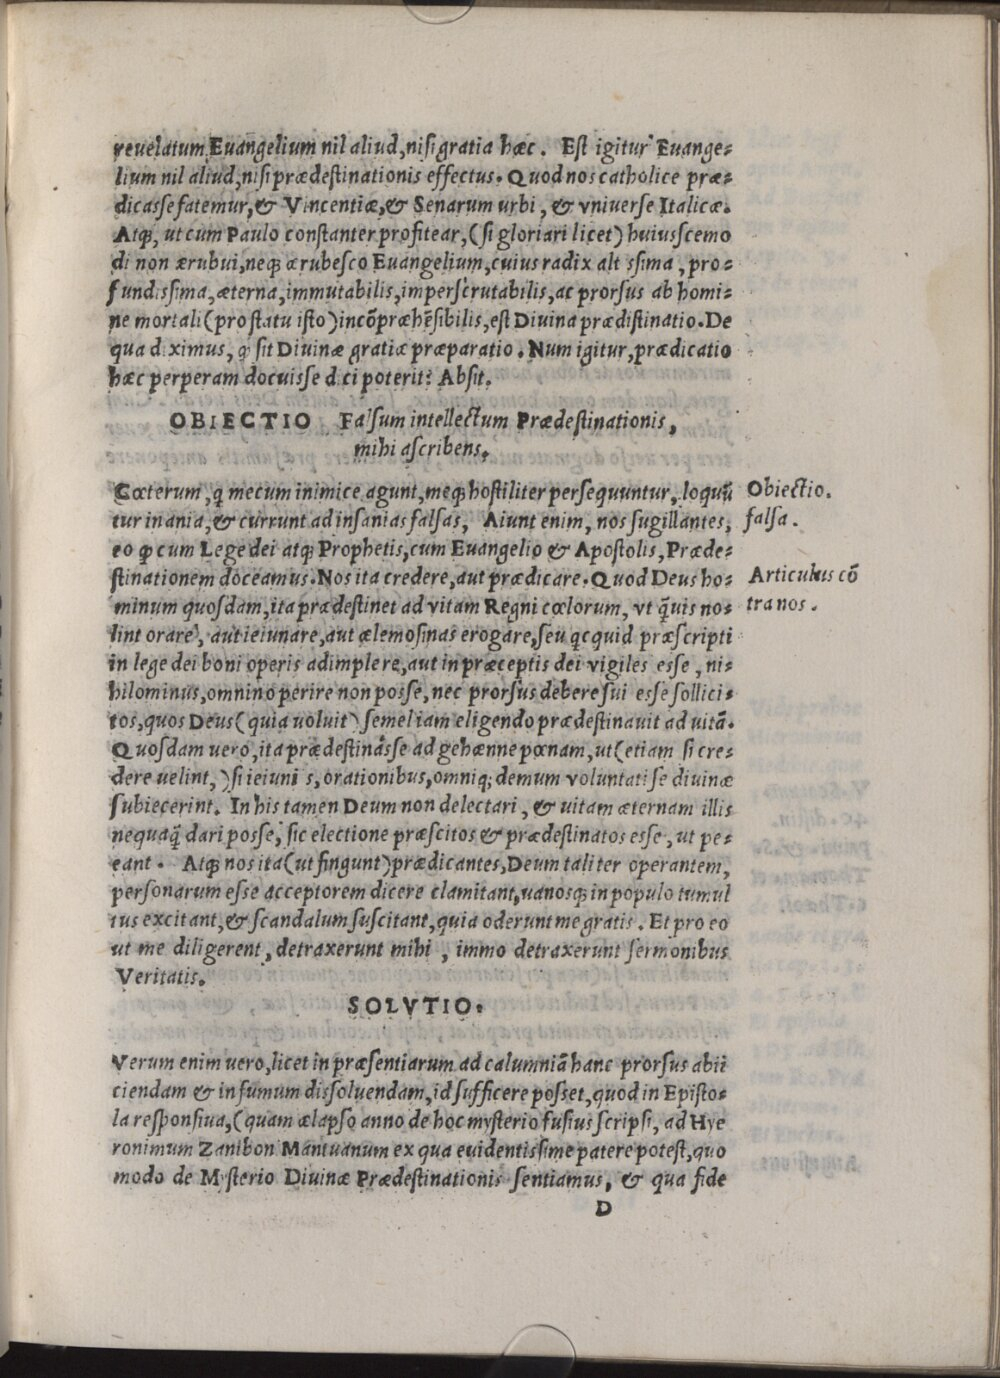 reuelatum Euangelium nil aliud, nisi gratia hæc. Est igitur Euange-
lium nil aliud, nisi prædestinationis effectus. Quod nos catholice præ-
dicasse fatemur, & Vincentiæ, & Senarum urbi, & vniuerse Italicæ.
Atq;, ut cum Paulo constanter profitear, (si gloriari licet) huiuscemo
di non ærubui, neq; ærubesco Euangelium, cuius radix alt ssima, pro-
fundissima, æterna, immutabilis, imperscrutabilis, ac prorsus ab homi-
ne mortali (pro statu isto) incõpræhẽsibilis, est Diuina prædistinatio. De
qua diximus, ꝙ sit Diuinæ gratiæ præparatio. Num igitur, prædicatio
hæc perperam docuisse dici poterit? Absit.
OBIECTIO Falsum intellectum Prædestinationis,
mihi ascribens.
Cœterum, q̃ mecum inimice agunt, meq; hostiliter persequuntur, loquũ
tur inania, & currunt ad insanias falsas, Aiunt enim, nos sugillantes,
eo ꝙ cum Lege dei atq; Prophetis, cum Euangelio & Apostolis, Præde-
stinationem doceamus. Nos ita credere, aut prædicare. Quod Deus ho-
minum quosdam, ita prædestinet ad vitam Regni cœlorum, vt q̃uis no-
lint orare, aut ieiunare, aut ælemosinas erogare, seu qcquid præscripti
in lege dei boni operis adimplere, aut in præceptis dei vigiles esse, ni-
hilominus, omnino perire non posse, nec prorsus debere sui esse sollici-
tos, quos Deus (quia uoluit) semel iam eligendo prædestinauit ad uitã.
Quosdam uero, ita prædestinásse ad gehænne pœnam, ut (etiam si cre-
dere uelint,) si ieiuni s, orationibus, omniq; demum voluntati se diuinæ
subiecerint. In his tamen Deum non delectari, & uitam æternam illis
nequaq̃ dari posse, sic electione præscitos & prædestinatos esse, ut pe-
eant. Atq; nos ita (ut fingunt) prædicantes, Deum taliter operantem,
personarum esse acceptorem dicere clamitant, uanosq; in populo tumul
tus excitant, & scandalum suscitant, quia oderunt me gratis. Et pro eo
ut me diligerent, detraxerunt mihi, immo detraxerunt sermonibus
Veritatis.
Obiectio.
falsa.
Articulus cõ
tra nos.
SOLVTIO.
Verum enim uero, licet in præsentiarum ad calumniã hanc prorsus abii
ciendam & in fumum dissoluendam, id sufficere posset, quod in Episto-
la responsiua, (quam ælapso anno de hoc mysterio fusius scripsi, ad Hye
ronimum Zanibon Mantuanum ex qua euidentissime patere potest, quo
modo de Mysterio Diuinæ Prædestinationis sentiamus, & qua fide
D